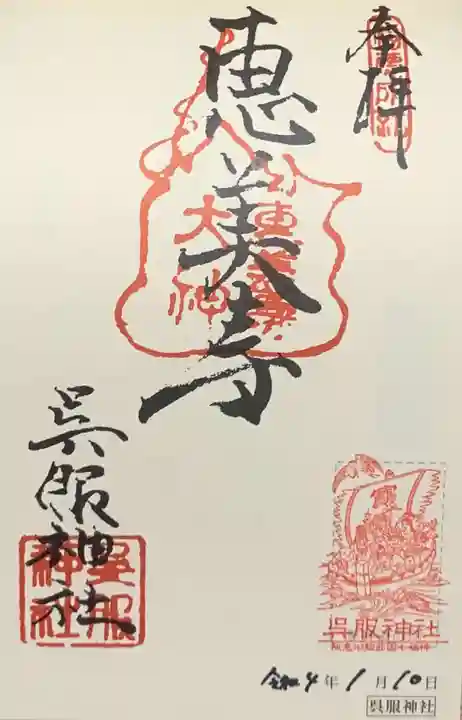 奉拝
恵美寿
大神
呉服神社
呉服
神社
呉服神社
令和4年1月10日
呉服神社